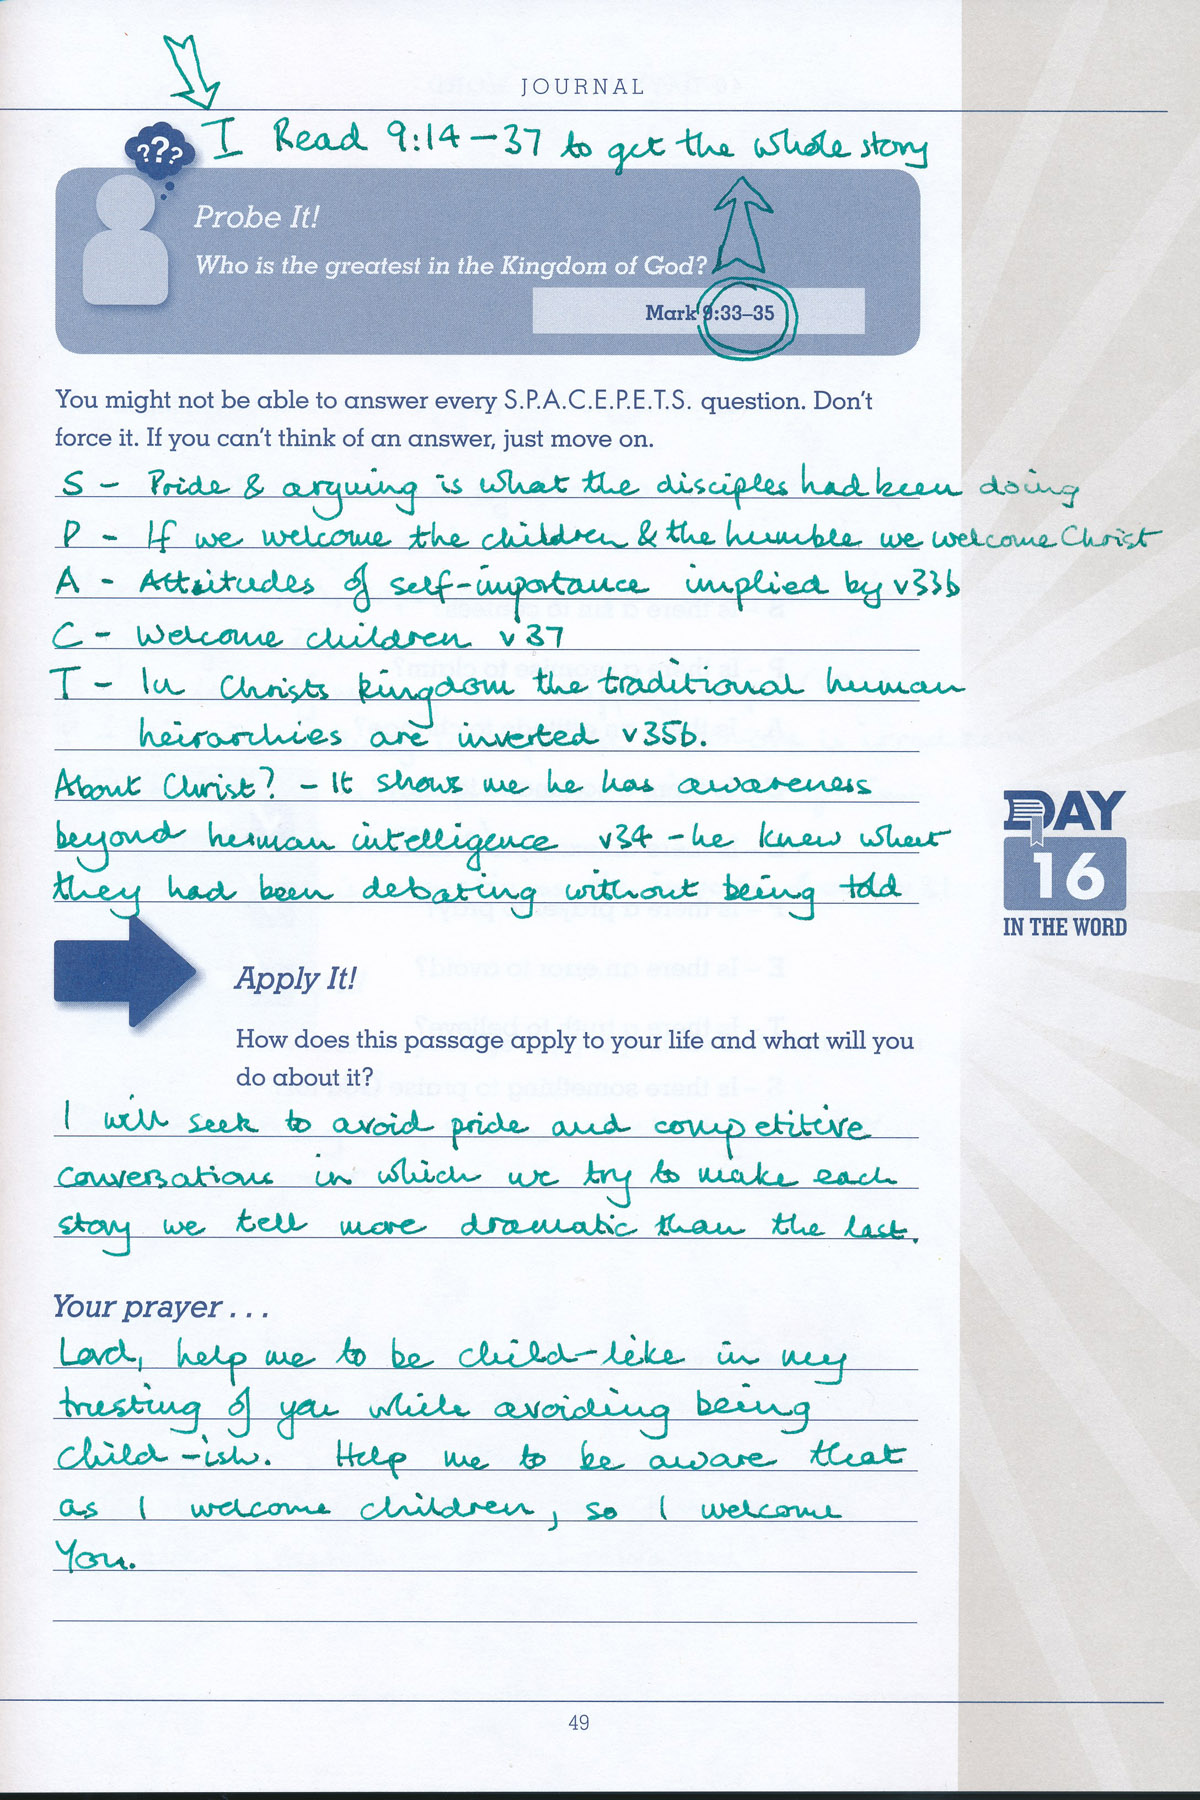 JOURNAL
???
I Read 9:14-37 to get the whole story
Probe It!
Who is the greatest in the Kingdom of God?
Mark 9:33–35
You might not be able to answer every S.P.A.C.E.P.E.T.S. question. Don't
force it. If you can't think of an answer, just move on.
S - Pride & arguing is what the disciples had been doing
P - If we welcome the children & the humble we welcome Christ
A - Attitudes of self-importance implied by v33b
C - Welcome children v37
T - In Christs kingdom the traditional human
heirarchies are inverted v35b.
About Christ? - It shows me he has awareness
beyond human intelligence v34 - he knew what
they had been debating without being told
DAY
16
IN THE WORD
Apply It!
How does this passage apply to your life and what will you
do about it?
I will seek to avoid pride and competitive
conversations in which we try to make each
story we tell more dramatic than the last.
Your prayer . . .
Lord, help me to be child-like in my
trusting of you while avoiding being
child-ish. Help me to be aware that
as I welcome children, so I welcome
You.
49